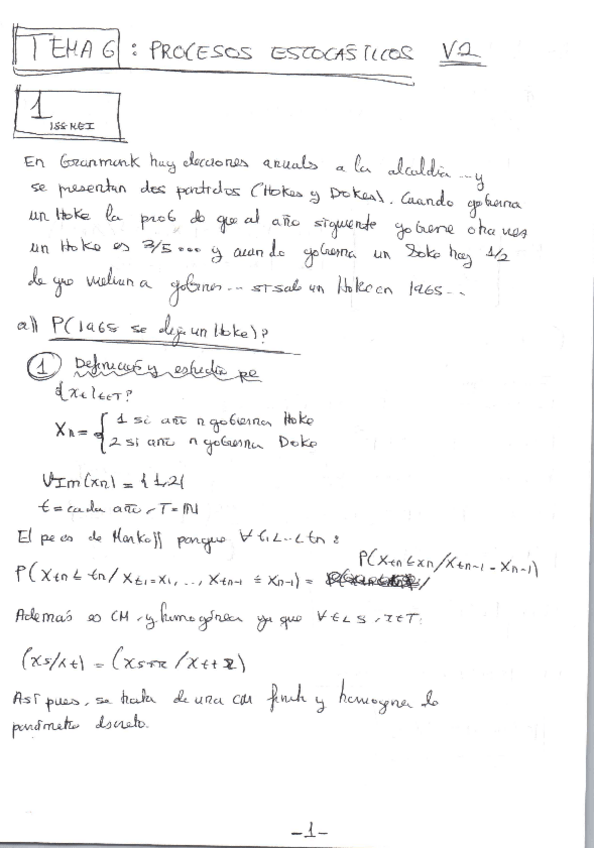 TEMA 6: PROCESOS ESTOCÁSTICOS V2
1
En Granmunk hay elecciones anuals a la alcaldía ... y
se presentan dos partidos (Hokes y Dokes). Cuando gobierna
un Hoke la prob de que al año siguiente gobierne otra vez
un Hoke es 3/5 ... y cuando gobierna un Doke hay 1/2
de que vuelvan a gobernar ... si salió un Hoke en 1965 ...
a)) P(1965 se elija un Hoke)?
1 Definición y estudio pe
{xt}t∈T?
Xn = { 1 si año n gobierna Hoke
2 si año n gobierna Doke
Im(xn) = {1,2}
t = cada año, T = ℕ
El pe es de Markoff porque ∀ t1<...<tn:
P(Xtn ≤ xn / Xtn-1 = Xn-1)
P(Xtn ≤ tn / Xt1=x1, ..., Xtn-1 = xn-1) =
Además es CM y homogénea ya que ∀ t<s, r∈T:
(xs/xt) = (xs+r / xt+r)
Así pues, se trata de una CM finita y homogénea de
parámetro discreto.
-1-